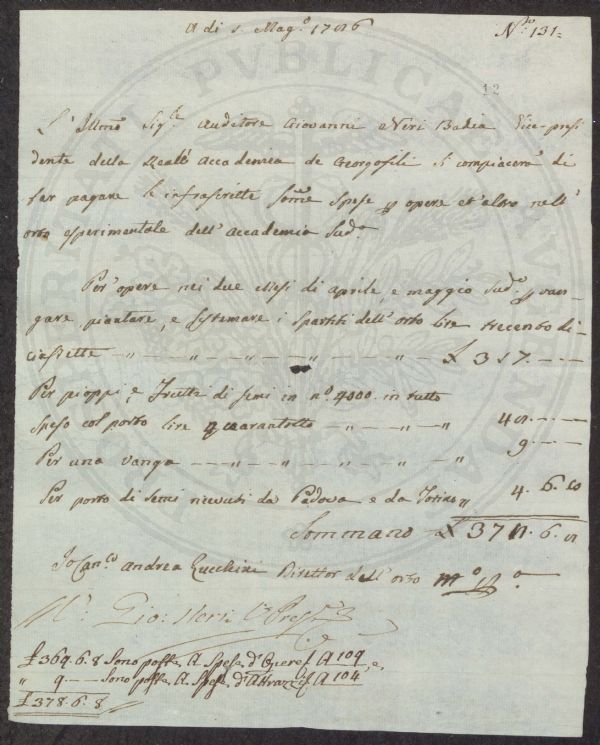 A di 8 Mag.o 1786
N.o 131=
12
L'Illmo Sig.re Auditore Giovanni Neri Badia Vice-presi
dente della Reale Accademia de Georgofili si compiacerà di
far pagare le infrascritte some spese p opere et altro nell'
orto esperimentale dell'Accademia Sud.a
Per opere nei due mesi di aprile, e maggio Sud.o p van-
gare, piantare, e sistemare i spartiti dell'orto lire trecento di-
ciassette £ 317.-.-
Per pioppi, e Frutti di semi in n.o 4000 in tutto
speso col porto lire quarantotto 48.-.-
Per una vanga 9.-.-
Per porto di semi ricevuti da Padova e da Torino 4. 6. 8
Sommano £ 378. 6. 8
Io Can.co Andrea Zucchini Direttor dell'orto m.o p.a
V. Gio: Neri V. Pres.
£ 369. 6. 8 Sono poste A Spese d'Opere A 109 e
" 9.-.- Sono poste A Spese d'Attrazzi A 104
£ 378. 6. 8